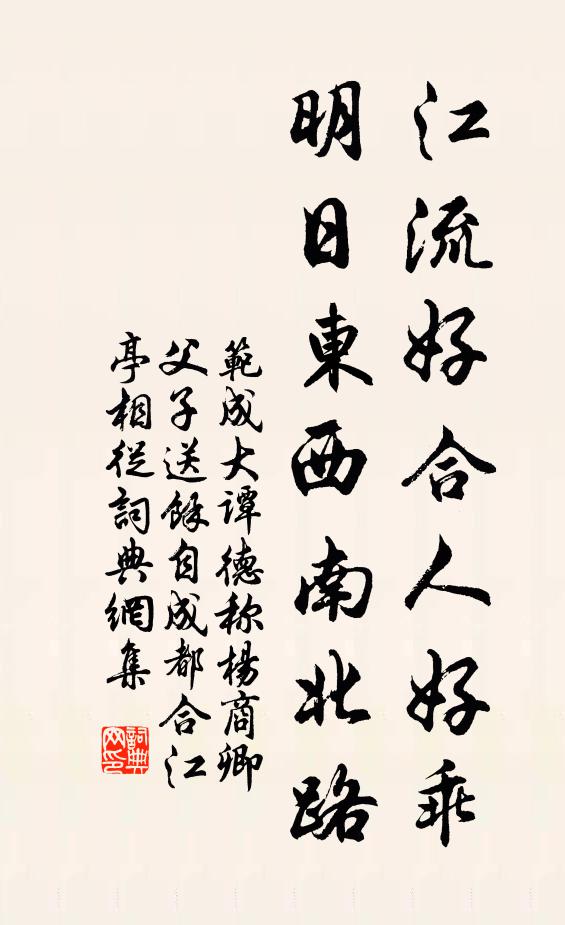 江流好合人好乖
明日東西南北路
範成大譚德称楊商卿
父子送餘自成都合江
亭相從詞典網集
詞典网印